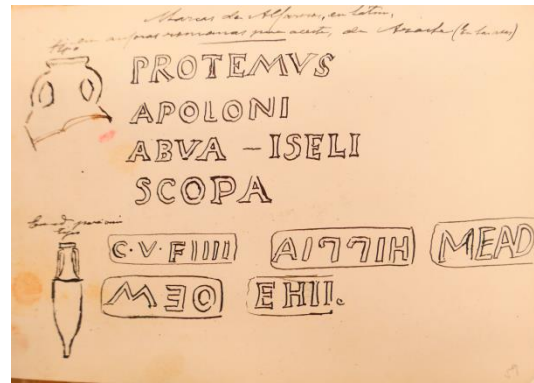 Marcas de Alfareros, en Latin,
anforas romanas para aceite, de
tipo
PROTEMVS
APOLONI
ABVA – ISELI
SCOPA
tipo
C·V·FIIII AI77IH MEAD
MƎO EHII.